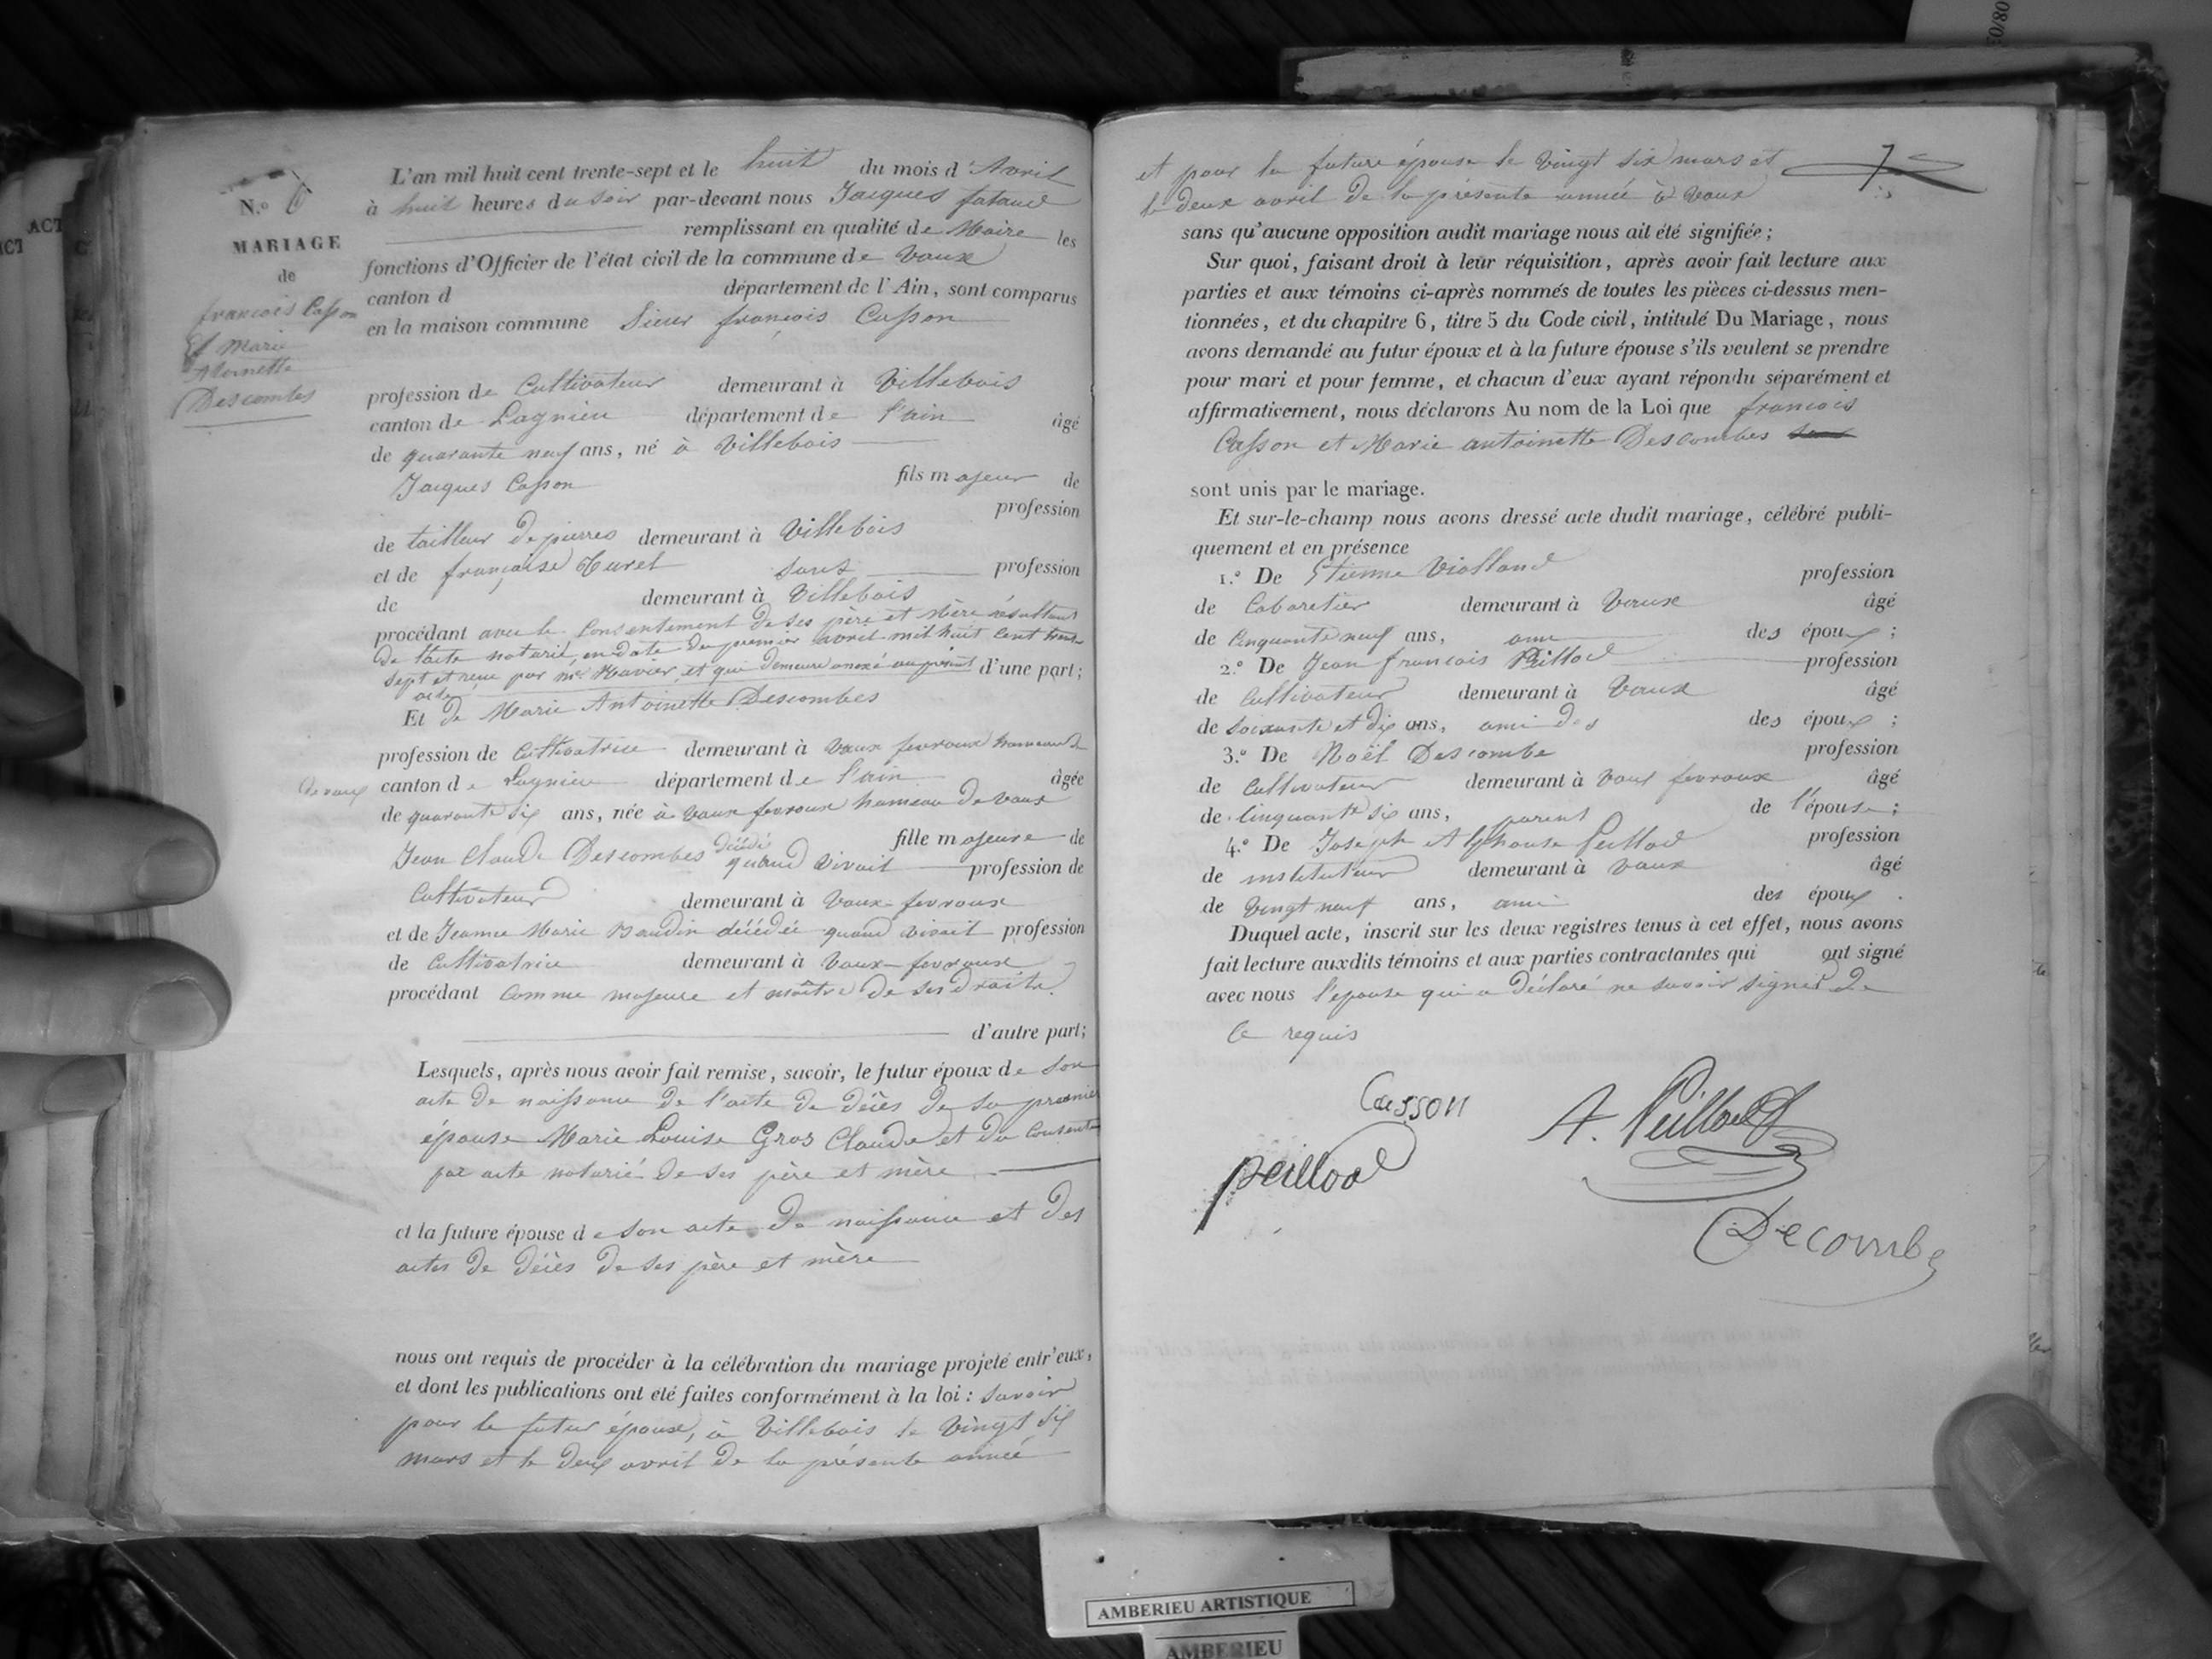 N.o 6
MARIAGE
de
françois Casson
Et Marie
Antoinette
Descombes
L'an mil huit cent trente-sept et le huit du mois d'Avril
à huit heures du soir par-devant nous Jacques
remplissant en qualité de Maire les
fonctions d'Officier de l'état civil de la commune de Vaux
canton d département de l'Ain, sont comparus
en la maison commune Sieur françois Casson
profession de Cultivateur demeurant à Villebois
canton de Lagnieu département de l'ain âgé
de quarante neuf ans, né à Villebois
fils majeur de
Jacques Casson profession
de tailleur de pierres demeurant à Villebois
et de françoise Curet sans profession
de demeurant à Villebois
procédant avec le consentement de ses père et mère résultant
de l'acte notarié en date du premier avril mil huit cent trente
sept et reçu par me et qui demeure anexé au présent d'une part;
acte
Et de Marie Antoinette Descombes
profession de Cultivatrice demeurant à Vaux fevroux hameau de
de vaux canton de Lagnieu département de l'ain âgée
de quarante six ans, née à Vaux fevroux hameau de Vaux
fille majeure de
Jean Claude Descombes décédé quand vivait profession de
Cultivateur demeurant à Vaux-fevroux
et de Jeanne Marie Baudin décédée quand vivait profession
de Cultivatrice demeurant à Vaux-fevroux
procédant comme majeure et maître de ses droits
d'autre part;
Lesquels, après nous avoir fait remise, savoir, le futur époux de son
acte de naissance de l'acte de décès de sa premier
épouse Marie Louise Gros Claude et du consente
par acte notarié de ses père et mère
et la future épouse de son acte de naissance et des
actes de décès de ses père et mère
nous ont requis de procéder à la célébration du mariage projeté entr'eux,
et dont les publications ont été faites conformément à la loi: savoir
pour le futur époux, à Villebois le vingt six
mars et le deux avril de la présente année
7
et pour la future épouse le vingt six mars et
le deux avril de la présente année à Vaux
sans qu'aucune opposition audit mariage nous ait été signifiée;
Sur quoi, faisant droit à leur réquisition, après avoir fait lecture aux
parties et aux témoins ci-après nommés de toutes les pièces ci-dessus men-
tionnées, et du chapitre 6, titre 5 du Code civil, intitulé Du Mariage, nous
avons demandé au futur époux et à la future épouse s'ils veulent se prendre
pour mari et pour femme, et chacun d'eux ayant répondu séparément et
affirmativement, nous déclarons Au nom de la Loi que françois
Casson et Marie antoinette Descombes
sont unis par le mariage.
Et sur-le-champ nous avons dressé acte dudit mariage, célébré publi-
quement et en présence
1.o De Etienne Violland profession
de Cabaretier demeurant à Vaux âgé
de cinquante neuf ans, ami des époux;
2.o De Jean françois Peillod profession
de Cultivateur demeurant à Vaux âgé
de soixante et dix ans, ami des des époux;
3.o De Noël Descombe profession
de Cultivateur demeurant à Vaux fevroux âgé
de cinquante six ans, parent de l'épouse;
4.o De Joseph Alphonse Peillod profession
de instituteur demeurant à Vaux âgé
de vingt neuf ans, ami des époux.
Duquel acte, inscrit sur les deux registres tenus à cet effet, nous avons
fait lecture auxdits témoins et aux parties contractantes qui ont signé
avec nous l'épouse qui a déclaré ne savoir signer de
ce requis
Casson
A. Peillod
peillod
Decombe
AMBERIEU ARTISTIQUE
AMBERIEU